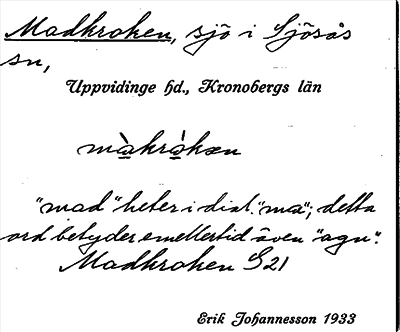 Madkroken, sjö i Sjösås
sn,
Uppvidinge hd., Kronobergs län
mà̱krò̱kæn
"mad" heter i dial. "ma"; detta
ord betyder emellertid även "agn".
Madkroken S21
Erik Johannesson 1933